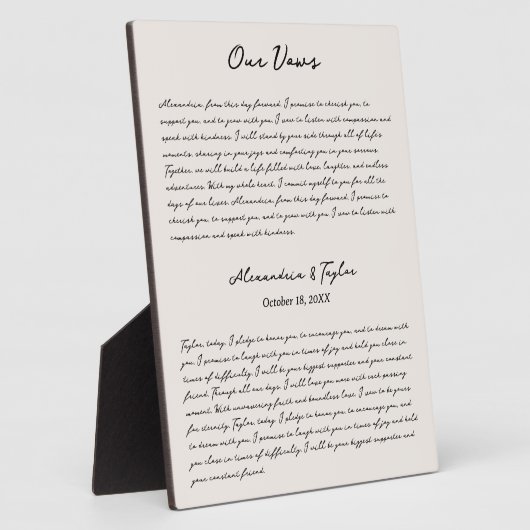 Our Vows
Alexandria, from this day forward, I promise to cherish you, to
support you, and to grow with you. I vow to listen with compassion and
speak with kindness. I will stand by your side through all of life's
moments, sharing in your joys and comforting you in your sorrows.
Together, we will build a life filled with love, laughter, and endless
adventures. With my whole heart, I commit myself to you for all the
days of our lives. Alexandria, from this day forward, I promise to
cherish you, to support you, and to grow with you. I vow to listen with
compassion and speak with kindness.
Alexandria & Taylor
October 18, 20XX
Taylor, today, I pledge to honor you, to encourage you, and to dream with
you. I promise to laugh with you in times of joy and hold you close in
times of difficulty. I will be your biggest supporter and your constant
friend. Through all our days, I will love you more with each passing
moment. With unwavering faith and boundless love, I vow to be yours
for eternity. Taylor, today, I pledge to honor you, to encourage you, and
to dream with you. I promise to laugh with you in times of joy and hold
you close in times of difficulty. I will be your biggest supporter and
your constant friend.